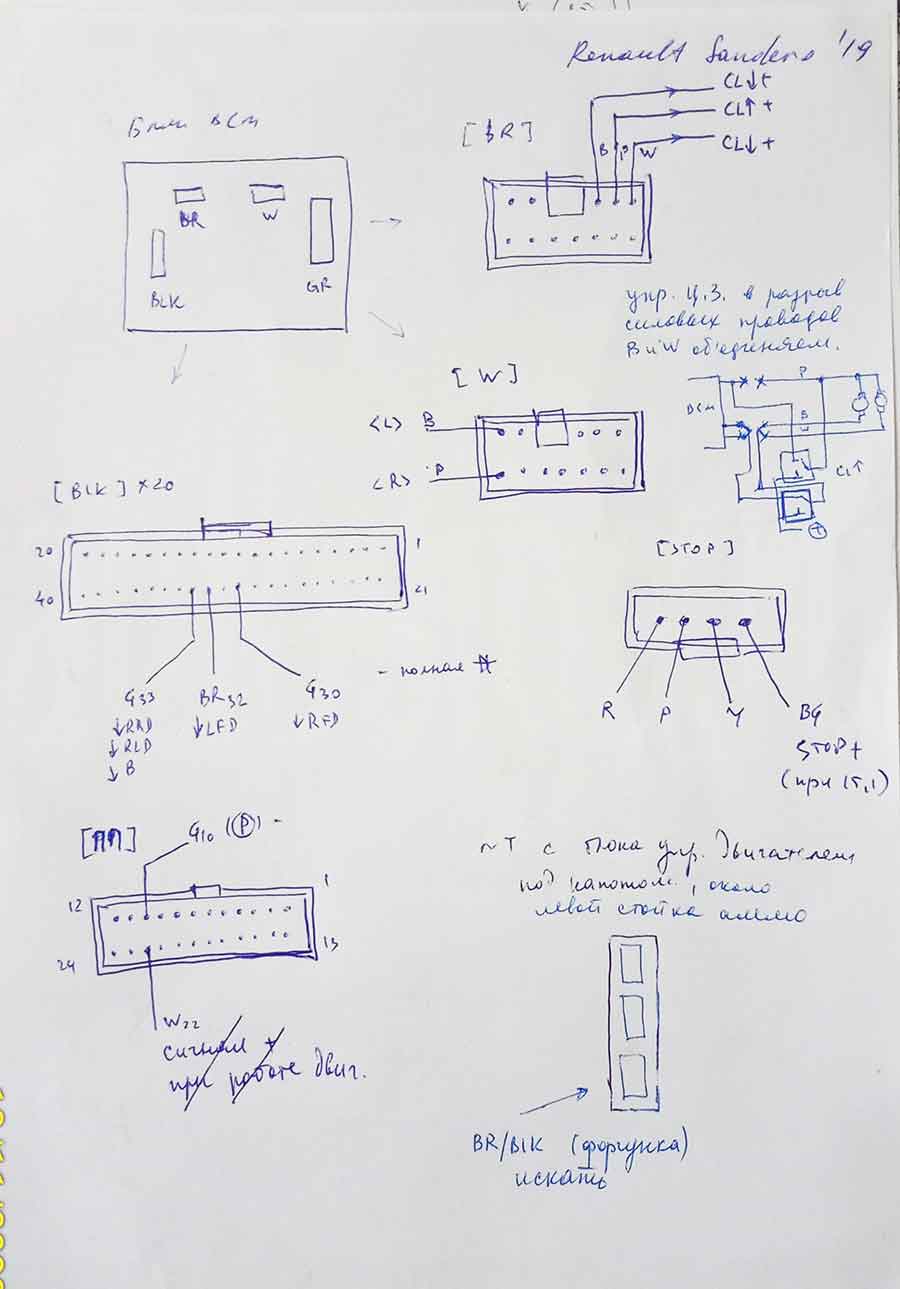 Renault Sandero '19
Блок BCM
BR
W
GR
BLK
[BR]
B P W
CL↓+
CL↑+
CL↓+
упр. Ц.З. в разрыв
силовых проводов
B и W объединяем.
[W]
<L> B
<R> P
BCM
P
B
W
CL↑
+
[BLK] x20
20
1
40
21
G33
↓RRD
↓RLD
↓B
BR32
↓LFD
G30
↓RFD
- полная
[STOP]
R
P
Y
BG
STOP+
(при IT,1)
[ПП]
G10 (P) -
12
1
24
13
W22
сигнал +
при работе двиг.
~T с блока упр. двигателем
под капотом, около
левой стойка аммо
BR/BLK (форсунка)
искать